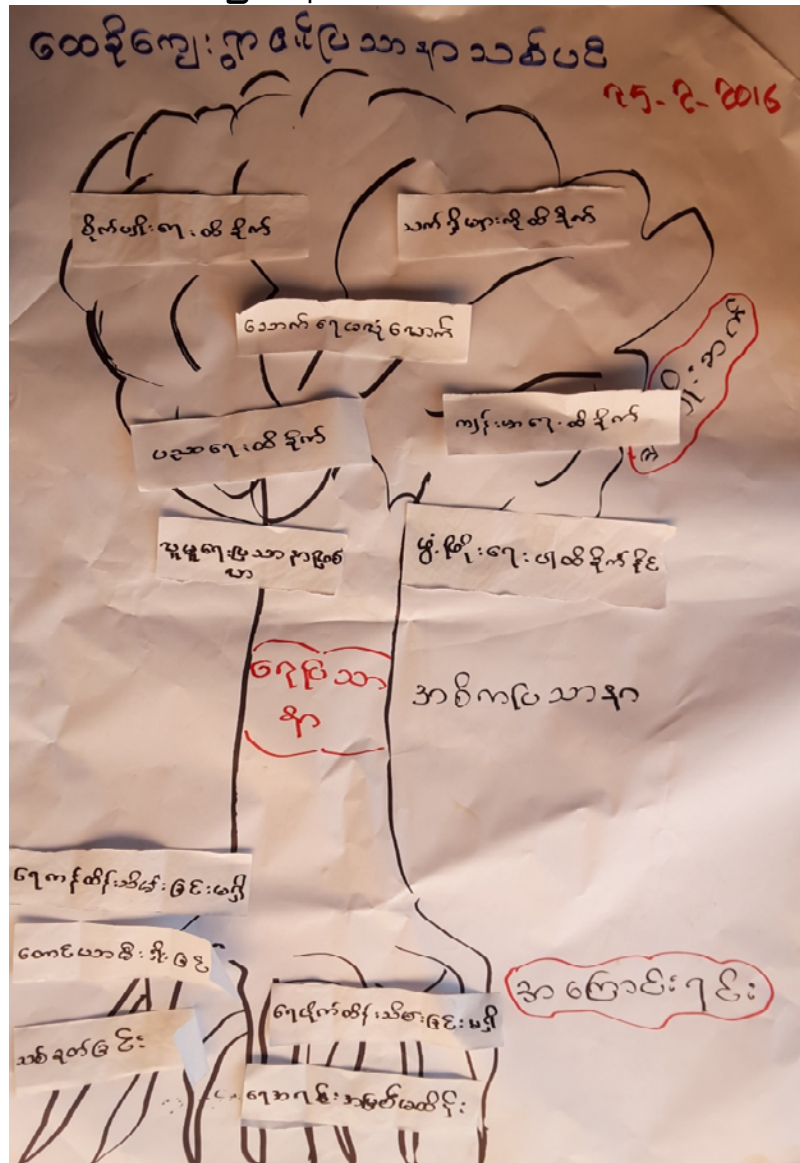 ထေခိုကျေးရွာ၏ပြသာနာသစ်ပင်
25-2-2016
စိုက်ပျိုးရေးထိခိုက်
သက်ရှိများကိုထိခိုက်
သောက်ရေမလုံလောက်
ပညာရေးထိခိုက်
ကျန်းမာရေးထိခိုက်
လူမူရေးပြသာနာဖြစ်
လာ
ဖွံ့ဖြိုးရေးပါထိခိုက်နိုင်
ရေပြသာ
နာ
အဓိကပြသာနာ
ရေကန်ထိန်းသိမ်းခြင်းမရှိ
တောင်ယာမီးရှို့ခြင်း
သစ်ခုတ်ခြင်း
ရေပိုက်ထိန်းသိမ်းခြင်းမရှိ
ရေအရင်းအမြစ်မထိန်း
အကြောင်းရင်း